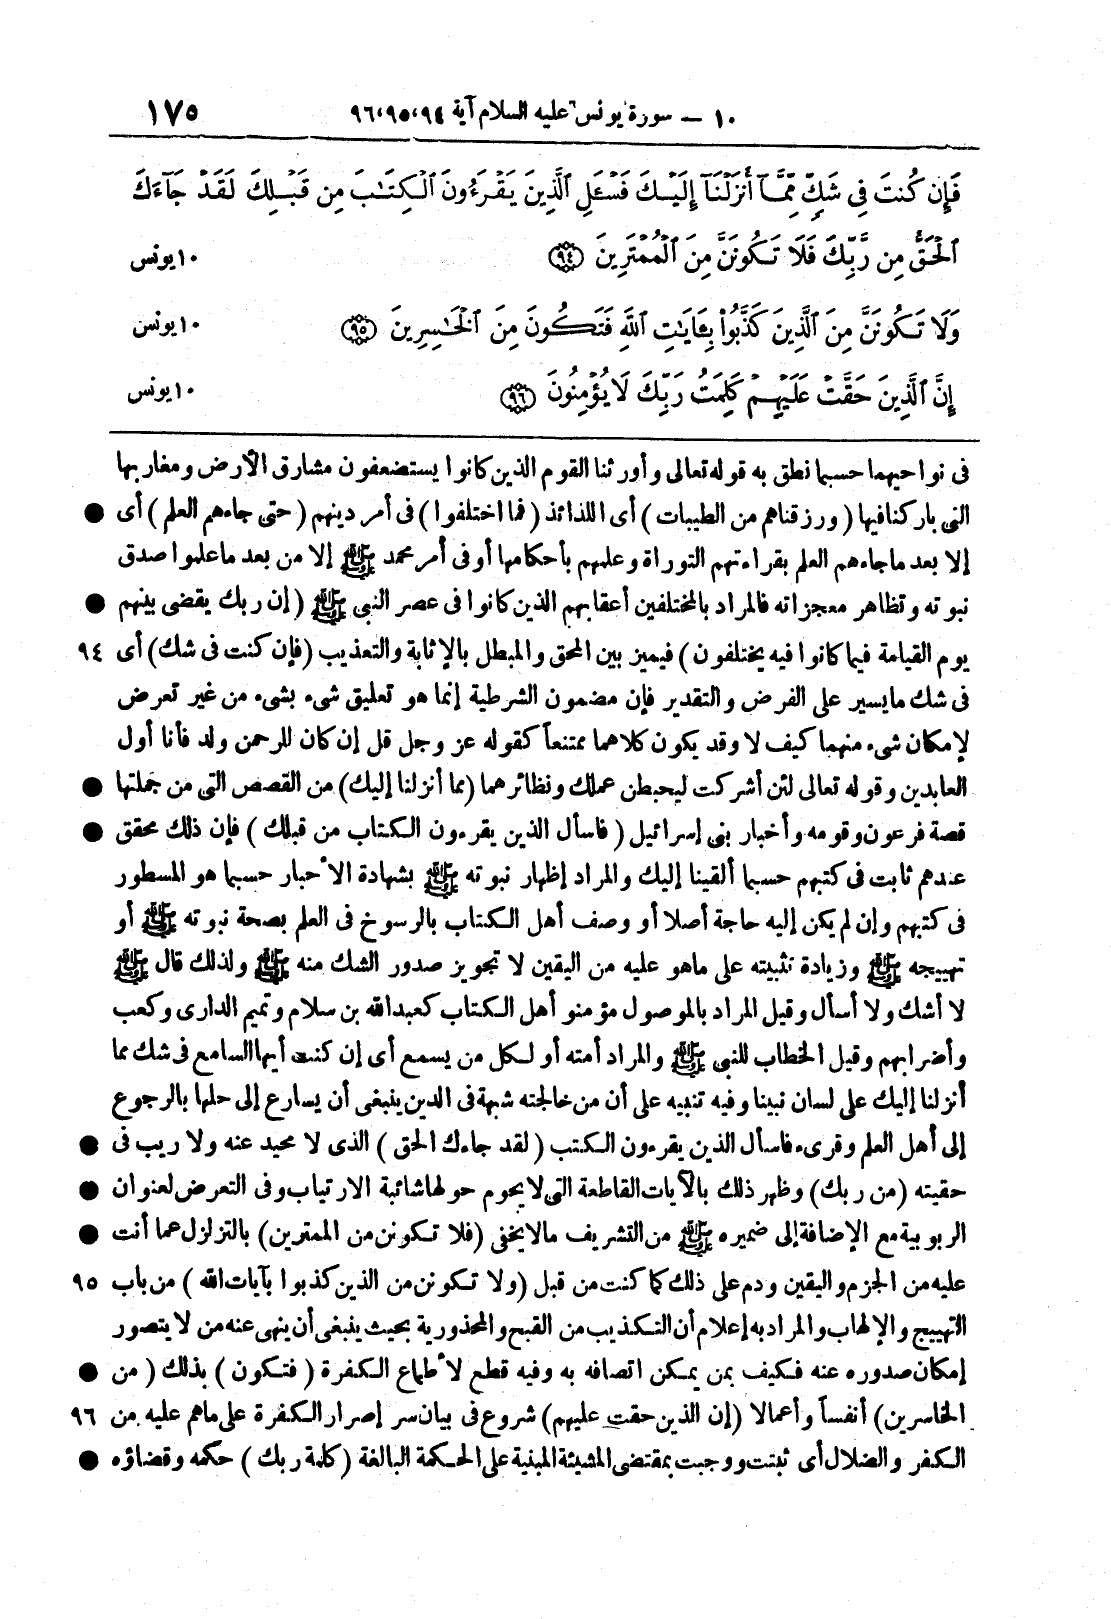 ١٠ – سورة يونس عليه السلام آية ٩٤،٩٥،٩٦ ١٧٥
فَإِن كُنتَ فِى شَكٍّ مِّمَّآ أَنزَلْنَآ إِلَيْكَ فَسْـَٔلِ ٱلَّذِينَ يَقْرَءُونَ ٱلْكِتَٰبَ مِن قَبْلِكَ لَقَدْ جَآءَكَ
ٱلْحَقُّ مِن رَّبِّكَ فَلَا تَكُونَنَّ مِنَ ٱلْمُمْتَرِينَ ٩٤ ١٠ يونس
وَلَا تَكُونَنَّ مِنَ ٱلَّذِينَ كَذَّبُوا۟ بِـَٔايَٰتِ ٱللَّهِ فَتَكُونَ مِنَ ٱلْخَٰسِرِينَ ٩٥ ١٠ يونس
إِنَّ ٱلَّذِينَ حَقَّتْ عَلَيْهِمْ كَلِمَتُ رَبِّكَ لَا يُؤْمِنُونَ ٩٦ ١٠ يونس
فى نواحيهما حسبما نطق به قوله تعالى وأورثنا القوم الذين كانوا يستضعفون مشارق الأرض ومغاربها
التى باركنا فيها ( ورزقناهم من الطيبات ) أى اللذائذ ( فما اختلفوا ) فى أمر دينهم ( حتى جاءهم العلم ) أى ●
إلا بعد ما جاءهم العلم بقراءتهم التوراة وعلمهم بأحكامها أو فى أمر محمد ﷺ إلا من بعد ما علموا صدق
نبوته وتظاهر معجزاته فالمراد بالمختلفين أعقابهم الذين كانوا فى عصر النبى ﷺ ( إن ربك يقضى بينهم ●
يوم القيامة فيما كانوا فيه يختلفون ) فيميز بين المحق والمبطل بالإثابة والتعذيب ( فإن كنت فى شك ) أى ٩٤
فى شك ما يسير على الفرض والتقدير فإن مضمون الشرطية إنما هو تعليق شىء بشىء من غير تعرض
لإمكان شىء منهما كيف لا وقد يكون كلاهما ممتنعاً كقوله عز وجل قل إن كان للرحمن ولد فأنا أول
العابدين وقوله تعالى لئن أشركت ليحبطن عملك ونظائرهما ( مما أنزلنا إليك ) من القصص التى من جملتها ●
قصة فرعون وقومه وأخبار بنى إسرائيل ( فاسأل الذين يقرءون الكتاب من قبلك ) فإن ذلك محقق ●
عندهم ثابت فى كتبهم حسبما ألقينا إليك والمراد إظهار نبوته ﷺ بشهادة الأحبار حسبما هو المسطور
فى كتبهم وإن لم يكن إليه حاجة أصلا أو وصف أهل الكتاب بالرسوخ فى العلم بصحة نبوته ﷺ أو
تهييجه ﷺ وزيادة تثبيته على ما هو عليه من اليقين لا تجويز صدور الشك منه ﷺ ولذلك قال ﷺ
لا أشك ولا أسأل وقيل المراد بالموصول مؤمنو أهل الكتاب كعبد الله بن سلام وتميم الدارى وكعب
وأضرابهم وقيل الخطاب للنبى ﷺ والمراد أمته أو لكل من يسمع أى إن كنت أيها السامع فى شك مما
أنزلنا إليك على لسان نبينا وفيه تنبيه على أن من خالجته شبهة فى الدين ينبغى أن يسارع إلى حلها بالرجوع
إلى أهل العلم وقرىء فاسأل الذين يقرءون الكتب ( لقد جاءك الحق ) الذى لا محيد عنه ولا ريب فى ●
حقيته ( من ربك ) وظهر ذلك بالآيات القاطعة التى لا يحوم حولها شائبة الارتياب وفى التعرض لعنوان ●
الربوبية مع الإضافة إلى ضميره ﷺ من التشريف ما لا يخفى ( فلا تكونن من الممترين ) بالتزلزل عما أنت ●
عليه من الجزم واليقين ودم على ذلك كما كنت من قبل ( ولا تكونن من الذين كذبوا بآيات الله ) من باب ٩٥
التهييج والإلهاب والمراد به إعلام أن التكذيب من القبح والمحذورية بحيث ينبغى أن ينهى عنه من لا يتصور
إمكان صدوره عنه فكيف بمن يمكن اتصافه به وفيه قطع لأطماع الكفرة ( فتكون ) بذلك ( من ●
الخاسرين ) أنفساً وأعمالا ( إن الذين حقت عليهم ) شروع فى بيان سر إصرار الكفرة على ما هم عليه من ٩٦
الكفر والضلال أى ثبتت ووجبت بمقتضى المشيئة المبنية على الحكمة البالغة ( كلمة ربك ) حكمه وقضاؤه ●